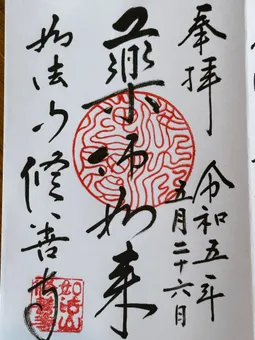 奉拝
令和五年
五月二十六日
薬師如来
如法山修善寺